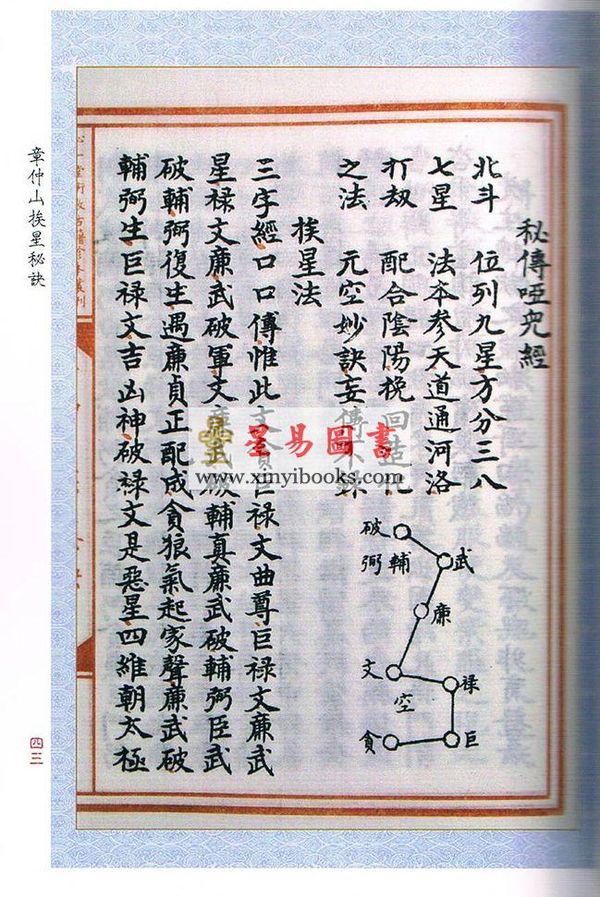 秘傳啞兒經
北斗 位列九星方分三八
七星 法夲参天道通河洛
打劫 配合陰陽挽回造化
之法 元空妙訣妄傳不
挨星法
三字經口口傳惟此文貪巨禄文曲尊巨禄文廉武
星禄文廉武破軍文廉武破輔真廉武破輔弼臣武
破輔弼復生遇廉貞正配成貪狼氣起家聲廉武破
輔弼生巨禄文吉凶神破禄文是惡星四維朝太極
破
武
弼輔
廉
文
禄
空
貪
巨
章仲山挨星秘訣
四三
星易圖書
www.xinyibooks.com